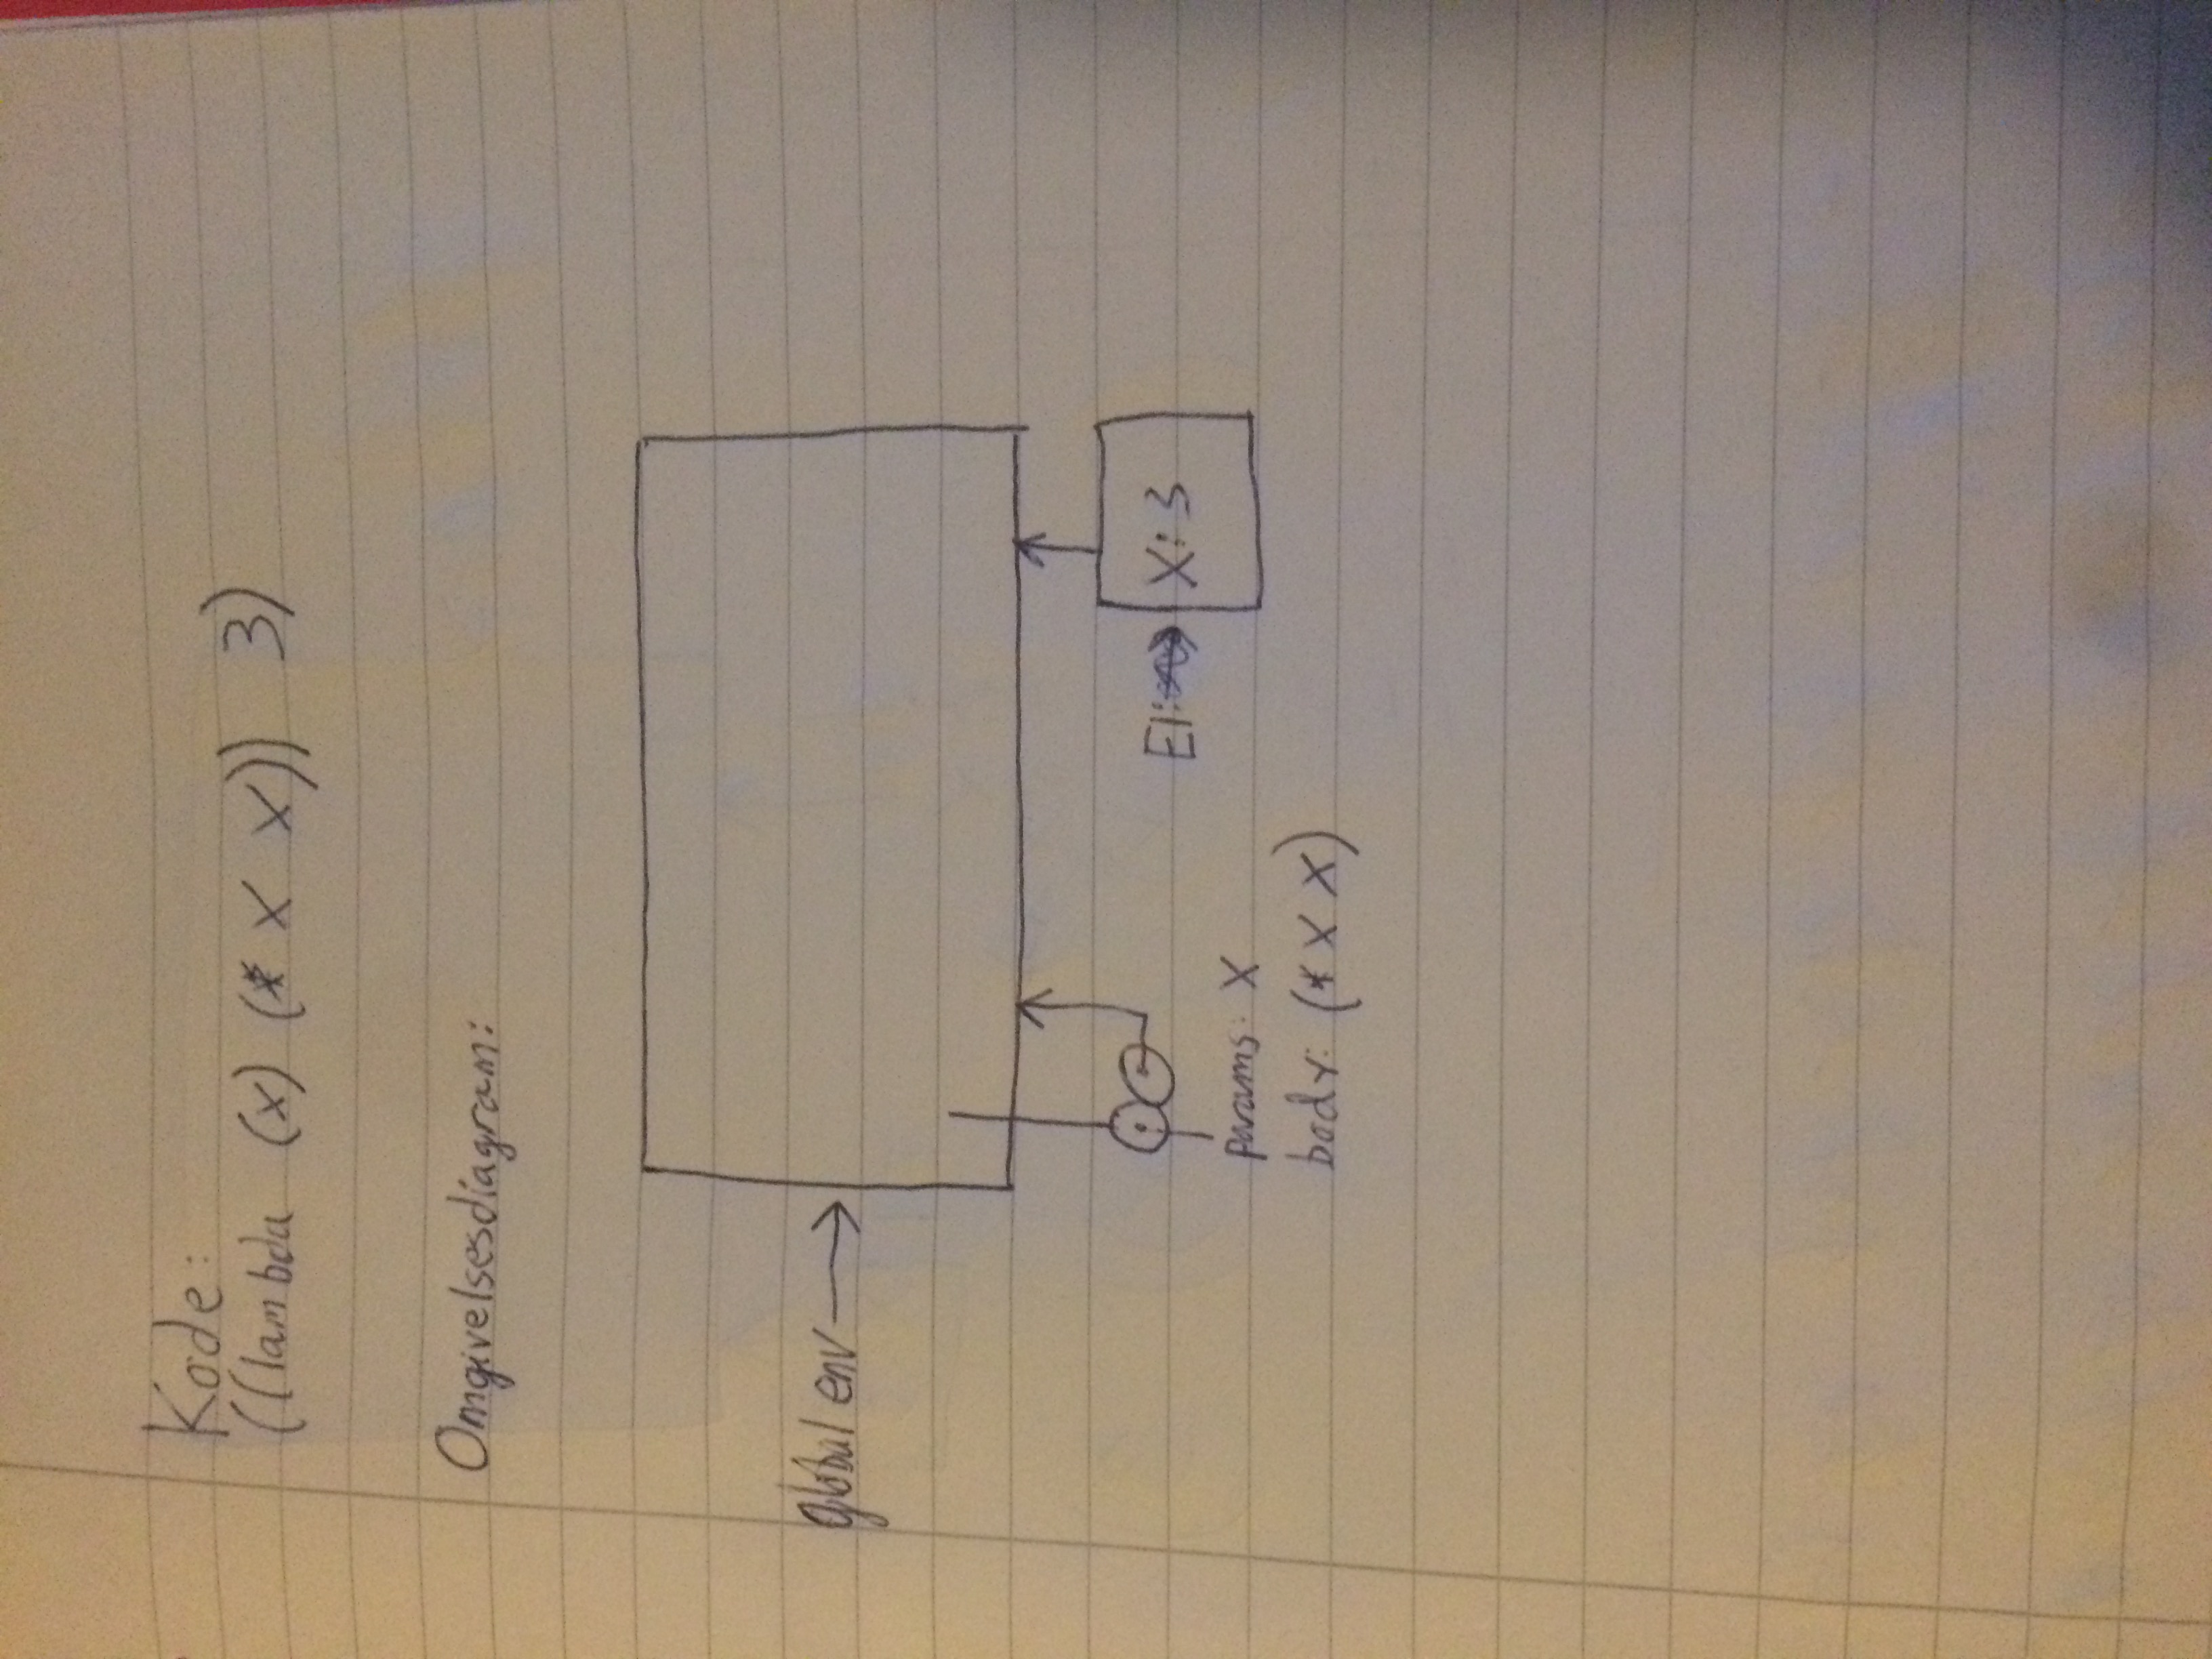 Kode:
((lambda (x) (* x x)) 3)
Omgivelsesdiagram:
global env
E1:
X: 3
params: X
body: (* x x)